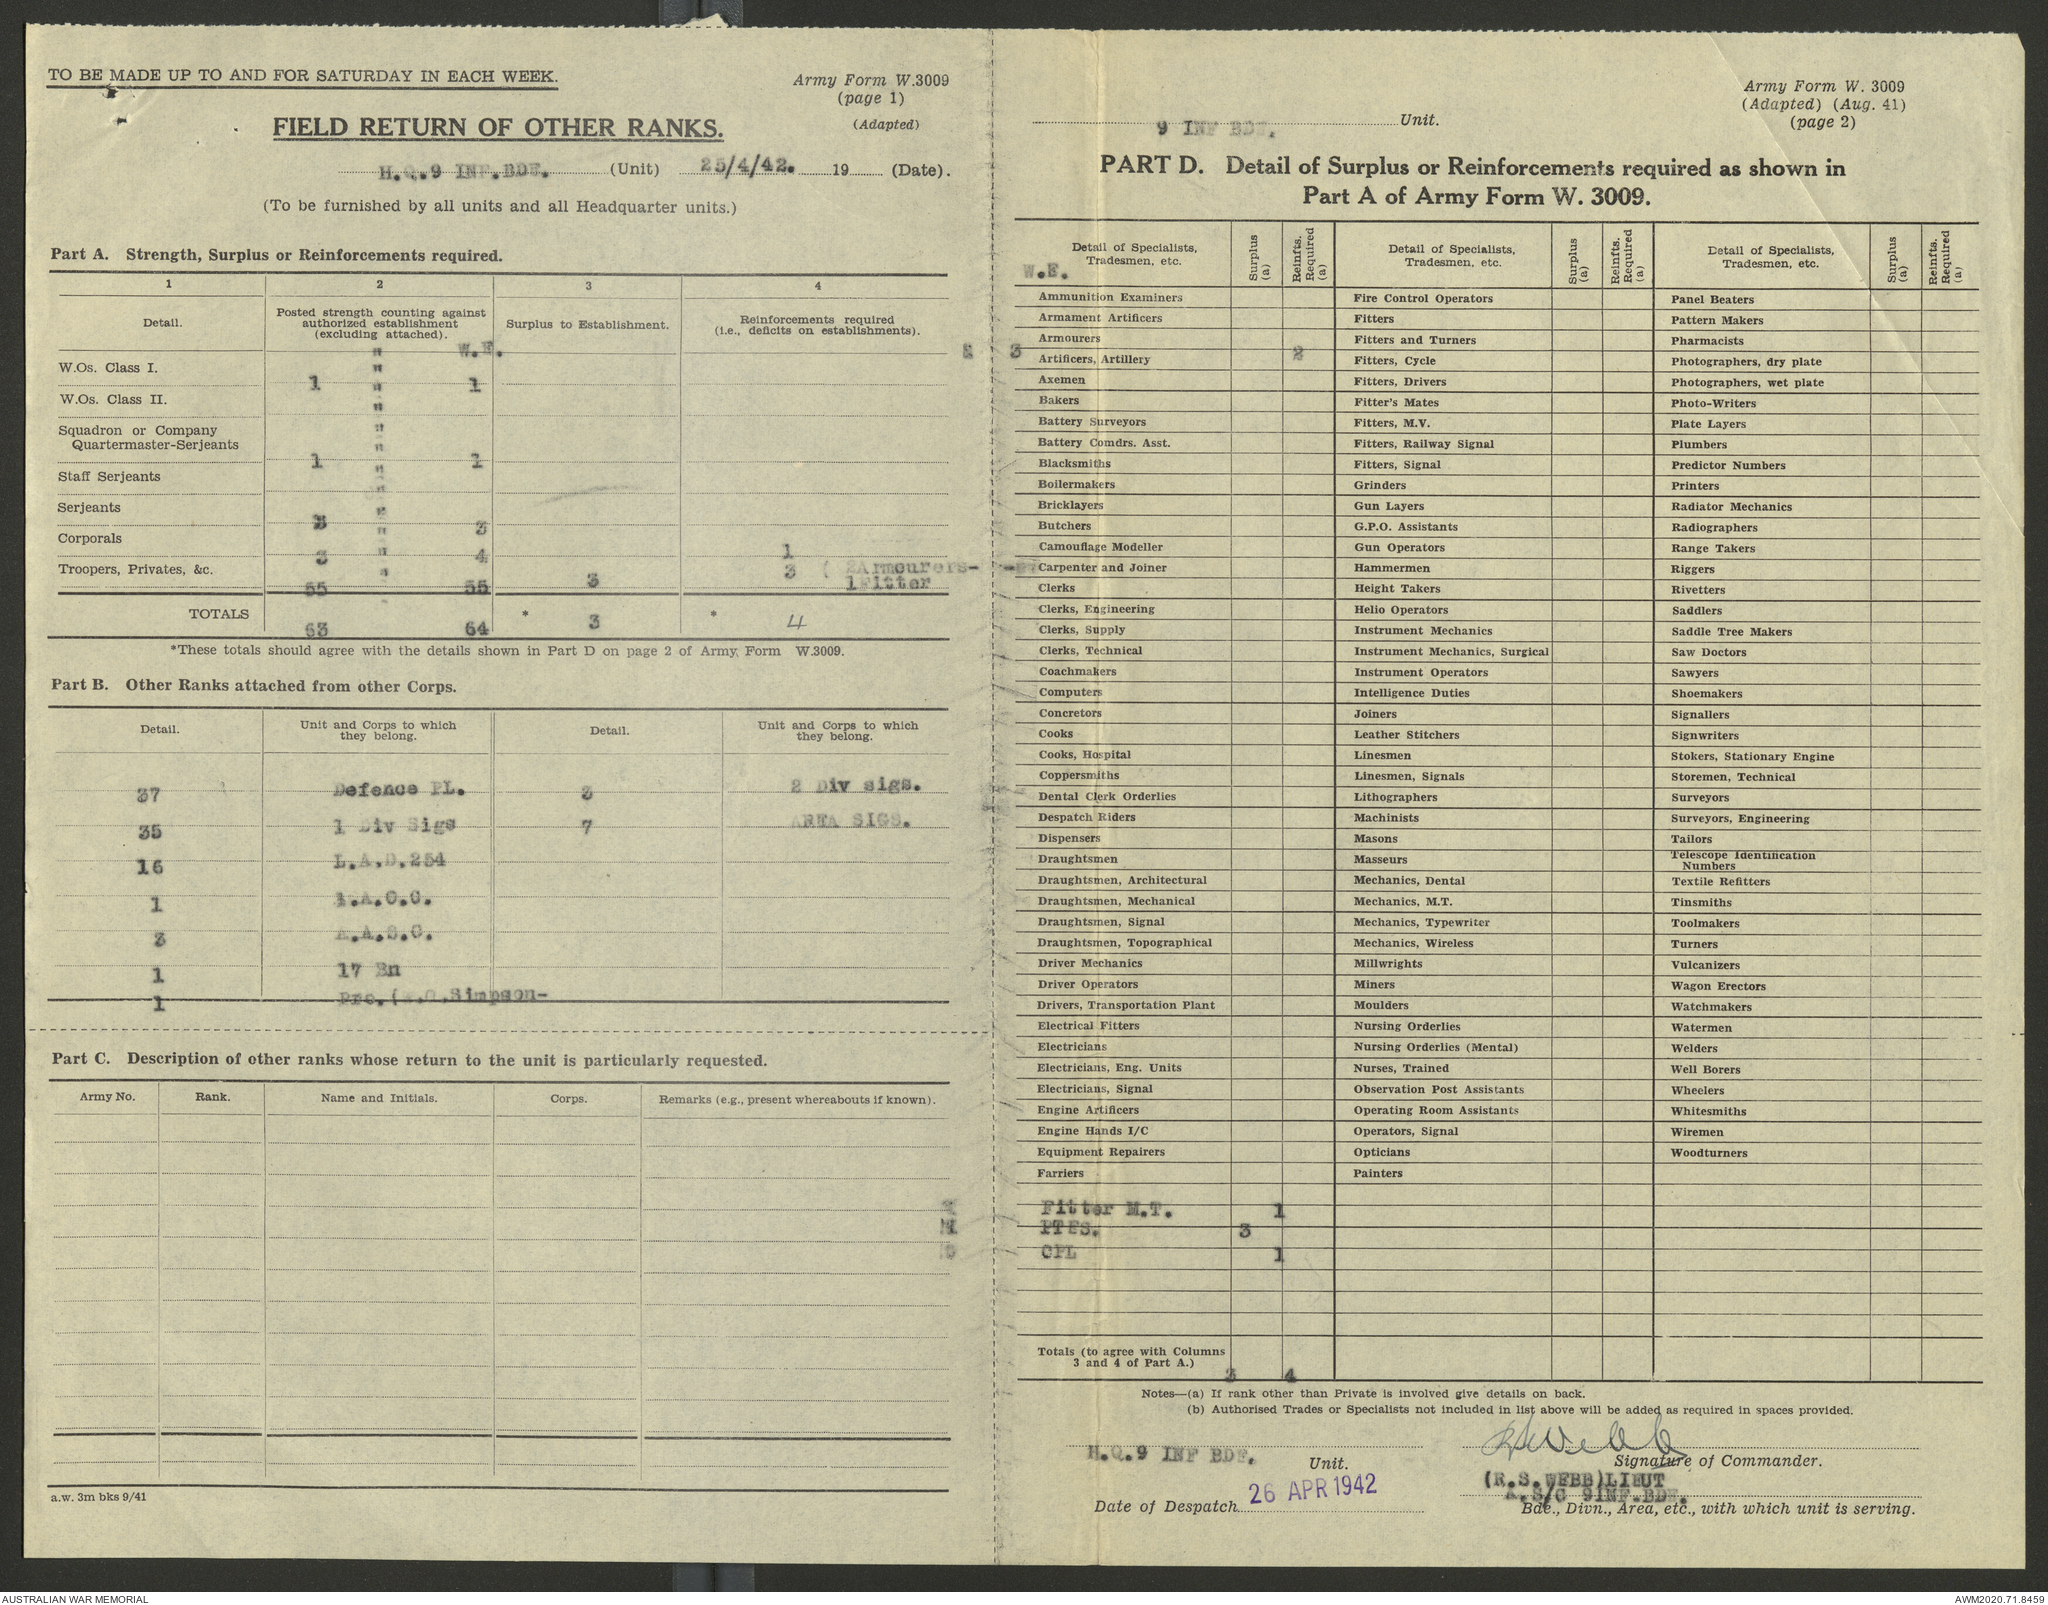 TO BE MADE UP TO AND FOR SATURDAY IN EACH WEEK.
Army Form W.3009
(page 1)
(Adapted)
FIELD RETURN OF OTHER RANKS.
H.Q.9 INF.BDE. (Unit) 25/4/42. 19 (Date).
(To be furnished by all units and all Headquarter units.)
Part A. Strength, Surplus or Reinforcements required.
1 2 3 4
Detail. Posted strength counting against authorized establishment (excluding attached). Surplus to Establishment. Reinforcements required (i.e., deficits on establishments).
" W.E.
W.Os. Class I. "
1 " 1
W.Os. Class II. "
Squadron or Company "
Quartermaster-Serjeants "
1 " 1
Staff Serjeants "
Serjeants "
3 " 3
Corporals "
3 " 4 1
Troopers, Privates, &c. " 3 ( 2Armourers-
55 55 3 1Fitter
TOTALS
63 64 * 3 * 4
*These totals should agree with the details shown in Part D on page 2 of Army Form W.3009.
Part B. Other Ranks attached from other Corps.
Detail. Unit and Corps to which they belong. Detail. Unit and Corps to which they belong.
37 Defence PL. 3 2 Div sigs.
35 1 Div Sigs 7 AREA SIGS.
16 L.A.D.254
1 A.A.C.C.
3 A.A.S.C.
1 17 Bn
1 Pro.(W.O.Simpson-
Part C. Description of other ranks whose return to the unit is particularly requested.
Army No. Rank. Name and Initials. Corps. Remarks (e.g., present whereabouts if known).
a.w. 3m bks 9/41
Army Form W. 3009
(Adapted) (Aug. 41)
(page 2)
9 INF BDE. Unit.
PART D. Detail of Surplus or Reinforcements required as shown in
Part A of Army Form W. 3009.
Detail of Specialists, Tradesmen, etc. Surplus (a) Reinfts. Required (a) Detail of Specialists, Tradesmen, etc. Surplus (a) Reinfts. Required (a) Detail of Specialists, Tradesmen, etc. Surplus (a) Reinfts. Required (a)
W.E.
Ammunition Examiners Fire Control Operators Panel Beaters
Armament Artificers Fitters Pattern Makers
Armourers Fitters and Turners Pharmacists
3 2
Artificers, Artillery Fitters, Cycle Photographers, dry plate
Axemen Fitters, Drivers Photographers, wet plate
Bakers Fitter's Mates Photo-Writers
Battery Surveyors Fitters, M.V. Plate Layers
Battery Comdrs. Asst. Fitters, Railway Signal Plumbers
Blacksmiths Fitters, Signal Predictor Numbers
Boilermakers Grinders Printers
Bricklayers Gun Layers Radiator Mechanics
Butchers G.P.O. Assistants Radiographers
Camouflage Modeller Gun Operators Range Takers
Carpenter and Joiner Hammermen Riggers
Clerks Height Takers Rivetters
Clerks, Engineering Helio Operators Saddlers
Clerks, Supply Instrument Mechanics Saddle Tree Makers
Clerks, Technical Instrument Mechanics, Surgical Saw Doctors
Coachmakers Instrument Operators Sawyers
Computers Intelligence Duties Shoemakers
Concretors Joiners Signallers
Cooks Leather Stitchers Signwriters
Cooks, Hospital Linesmen Stokers, Stationary Engine
Coppersmiths Linesmen, Signals Storemen, Technical
Dental Clerk Orderlies Lithographers Surveyors
Despatch Riders Machinists Surveyors, Engineering
Dispensers Masons Tailors
Draughtsmen Masseurs Telescope Identification Numbers
Draughtsmen, Architectural Mechanics, Dental Textile Refitters
Draughtsmen, Mechanical Mechanics, M.T. Tinsmiths
Draughtsmen, Signal Mechanics, Typewriter Toolmakers
Draughtsmen, Topographical Mechanics, Wireless Turners
Driver Mechanics Millwrights Vulcanizers
Driver Operators Miners Wagon Erectors
Drivers, Transportation Plant Moulders Watchmakers
Electrical Fitters Nursing Orderlies Watermen
Electricians Nursing Orderlies (Mental) Welders
Electricians, Eng. Units Nurses, Trained Well Borers
Electricians, Signal Observation Post Assistants Wheelers
Engine Artificers Operating Room Assistants Whitesmiths
Engine Hands I/C Operators, Signal Wiremen
Equipment Repairers Opticians Woodturners
Farriers Painters
Fitter M.T. 1
PTES. 3
CPL 1
Totals (to agree with Columns
3 and 4 of Part A.)
3 4
Notes—(a) If rank other than Private is involved give details on back.
(b) Authorised Trades or Specialists not included in list above will be added as required in spaces provided.
H.Q.9 INF BDE. Unit.
RSWebb
Signature of Commander.
(R.S.WEBB)LIEUT
A.S/C 9INF.BDE.
Date of Despatch 26 APR 1942
Bde., Divn., Area, etc., with which unit is serving.
AUSTRALIAN WAR MEMORIAL
AWM2020.71.8459